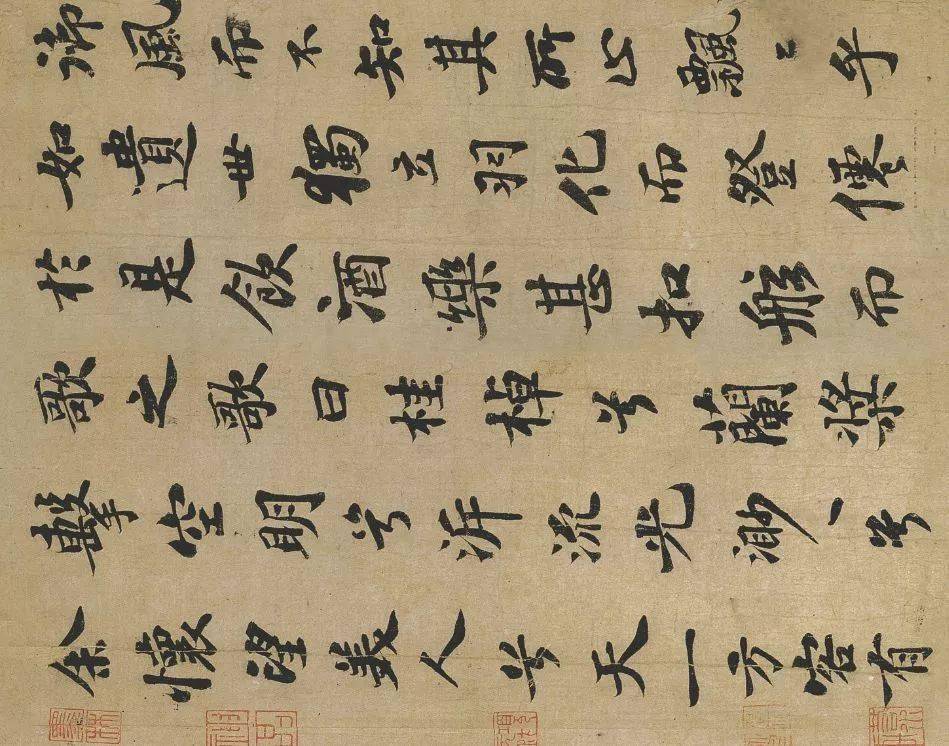 御風而不知其所止飄〻乎
如遺世獨立羽化而登僊
於是飲酒樂甚扣舷而
歌之歌曰桂棹兮蘭槳
擊空明兮泝流光渺〻兮
余懷望美人兮天一方客有